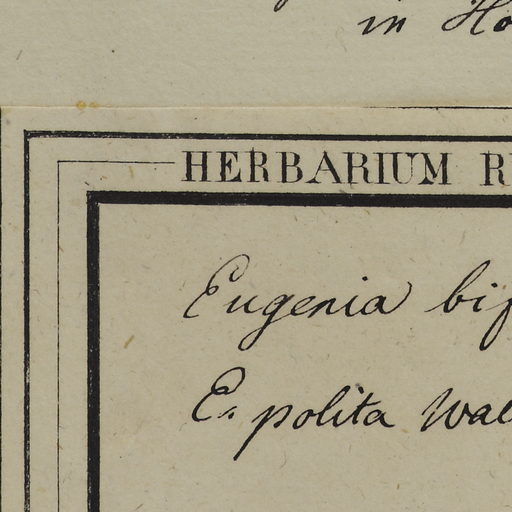 in Ho
HERBARIUM R
Eugenia
E. polita Wal